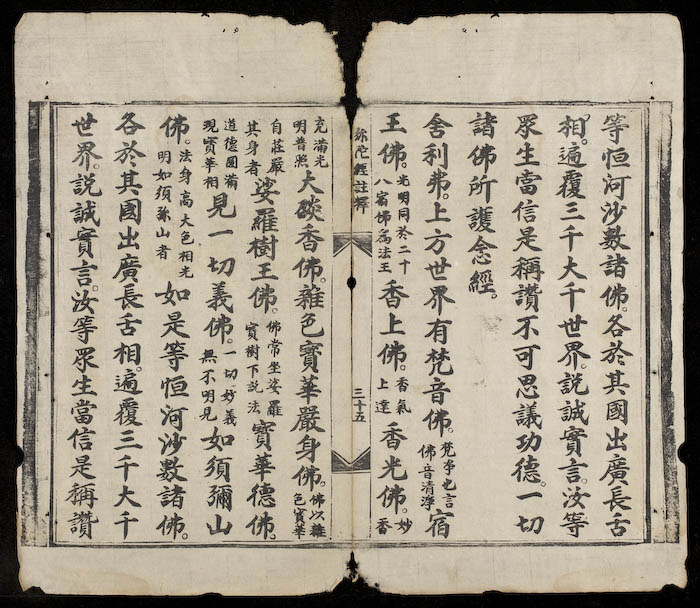 等恒河沙數諸佛。各於其國出廣長舌
相。遍覆三千大千世界。說誠實言。汝等
眾生當信是稱讚不可思議功德。一切
諸佛所護念經。
舍利弗。上方世界有梵音佛。梵淨也言佛音清淨宿
王佛。光明同於二十八宿佛爲法王香上佛。香氣上達香光佛。妙香
弥陀經註釋
三十五
充滿光明普照大燄香佛。雜色寶華嚴身佛。佛以雜色寶華
自莊嚴其身者娑羅樹王佛。佛常坐娑羅寶樹下說法寶華德佛。
道德圓滿現寶華相見一切義佛。一切妙義無不明見如須彌山
佛。法身高大色相光明如須弥山者如是等恒河沙數諸佛。
各於其國出廣長舌相。遍覆三千大千
世界。說誠實言。汝等眾生當信是稱讚